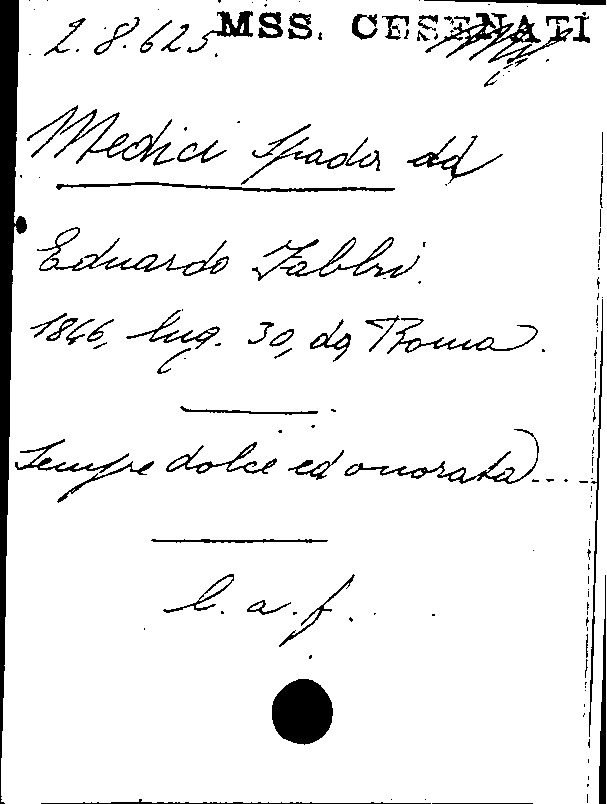 MSS. CESENATI
2.8.625.
Medici Spada ad
Eduardo Fabbri.
1846, lug. 30, da Roma.
Sempre dolce ed onorata.....
l. a. f.